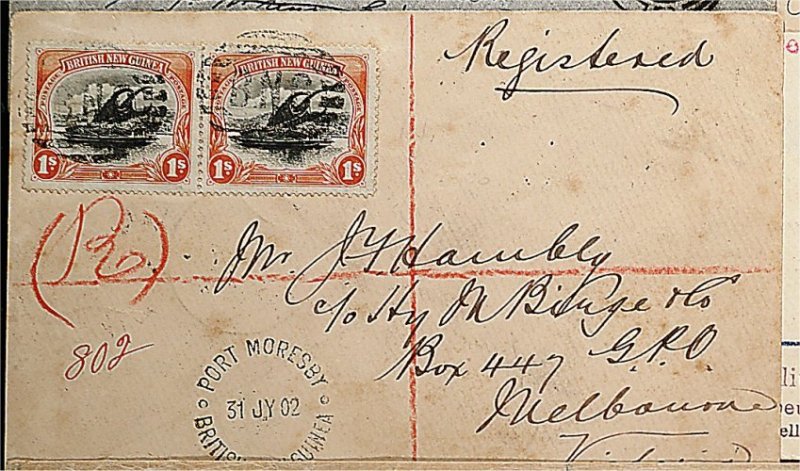 BRITISH NEW GUINEA
POSTAGE POSTAGE
1s 1s
BRITISH NEW GUINEA
POSTAGE POSTAGE
1s 1s
BNG
Registered
(R)
802
Mr. J Hambly
c/o Hy M & Co
Box 447 G.P.O.
Melbourne
Victoria
PORT MORESBY
31 JY 02
BRITISH GUINEA